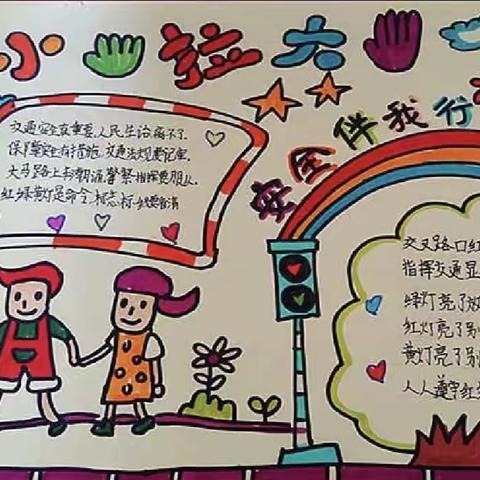 小 拉大
安全伴我行
交通安全真重要,人民生活离不了.
保障安全有措施,交通法规要记牢.
大马路上有朝流,警察指挥要服从.
红绿黄灯是命令,标志标线要看清
交叉路口红
指挥交通显
绿灯亮了放
红灯亮了别
黄灯亮了别
人人遵守红